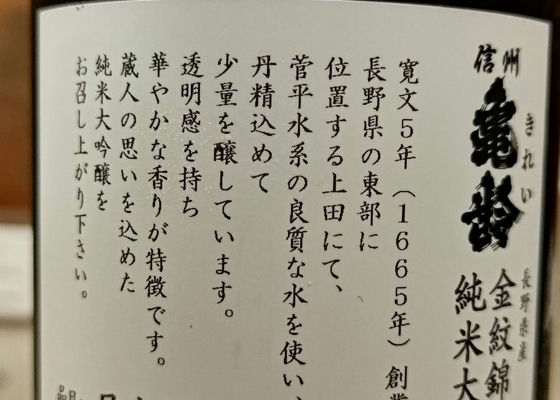 信州
亀齢
きれい
長野県産
金紋錦
純米大
寛文5年（1665年）創業
長野県の東部に
位置する上田にて、
菅平水系の良質な水を使い、
丹精込めて
少量を醸しています。
透明感を持ち
華やかな香りが特徴です。
蔵人の思いを込めた
純米大吟醸を
お召し上がり下さい。